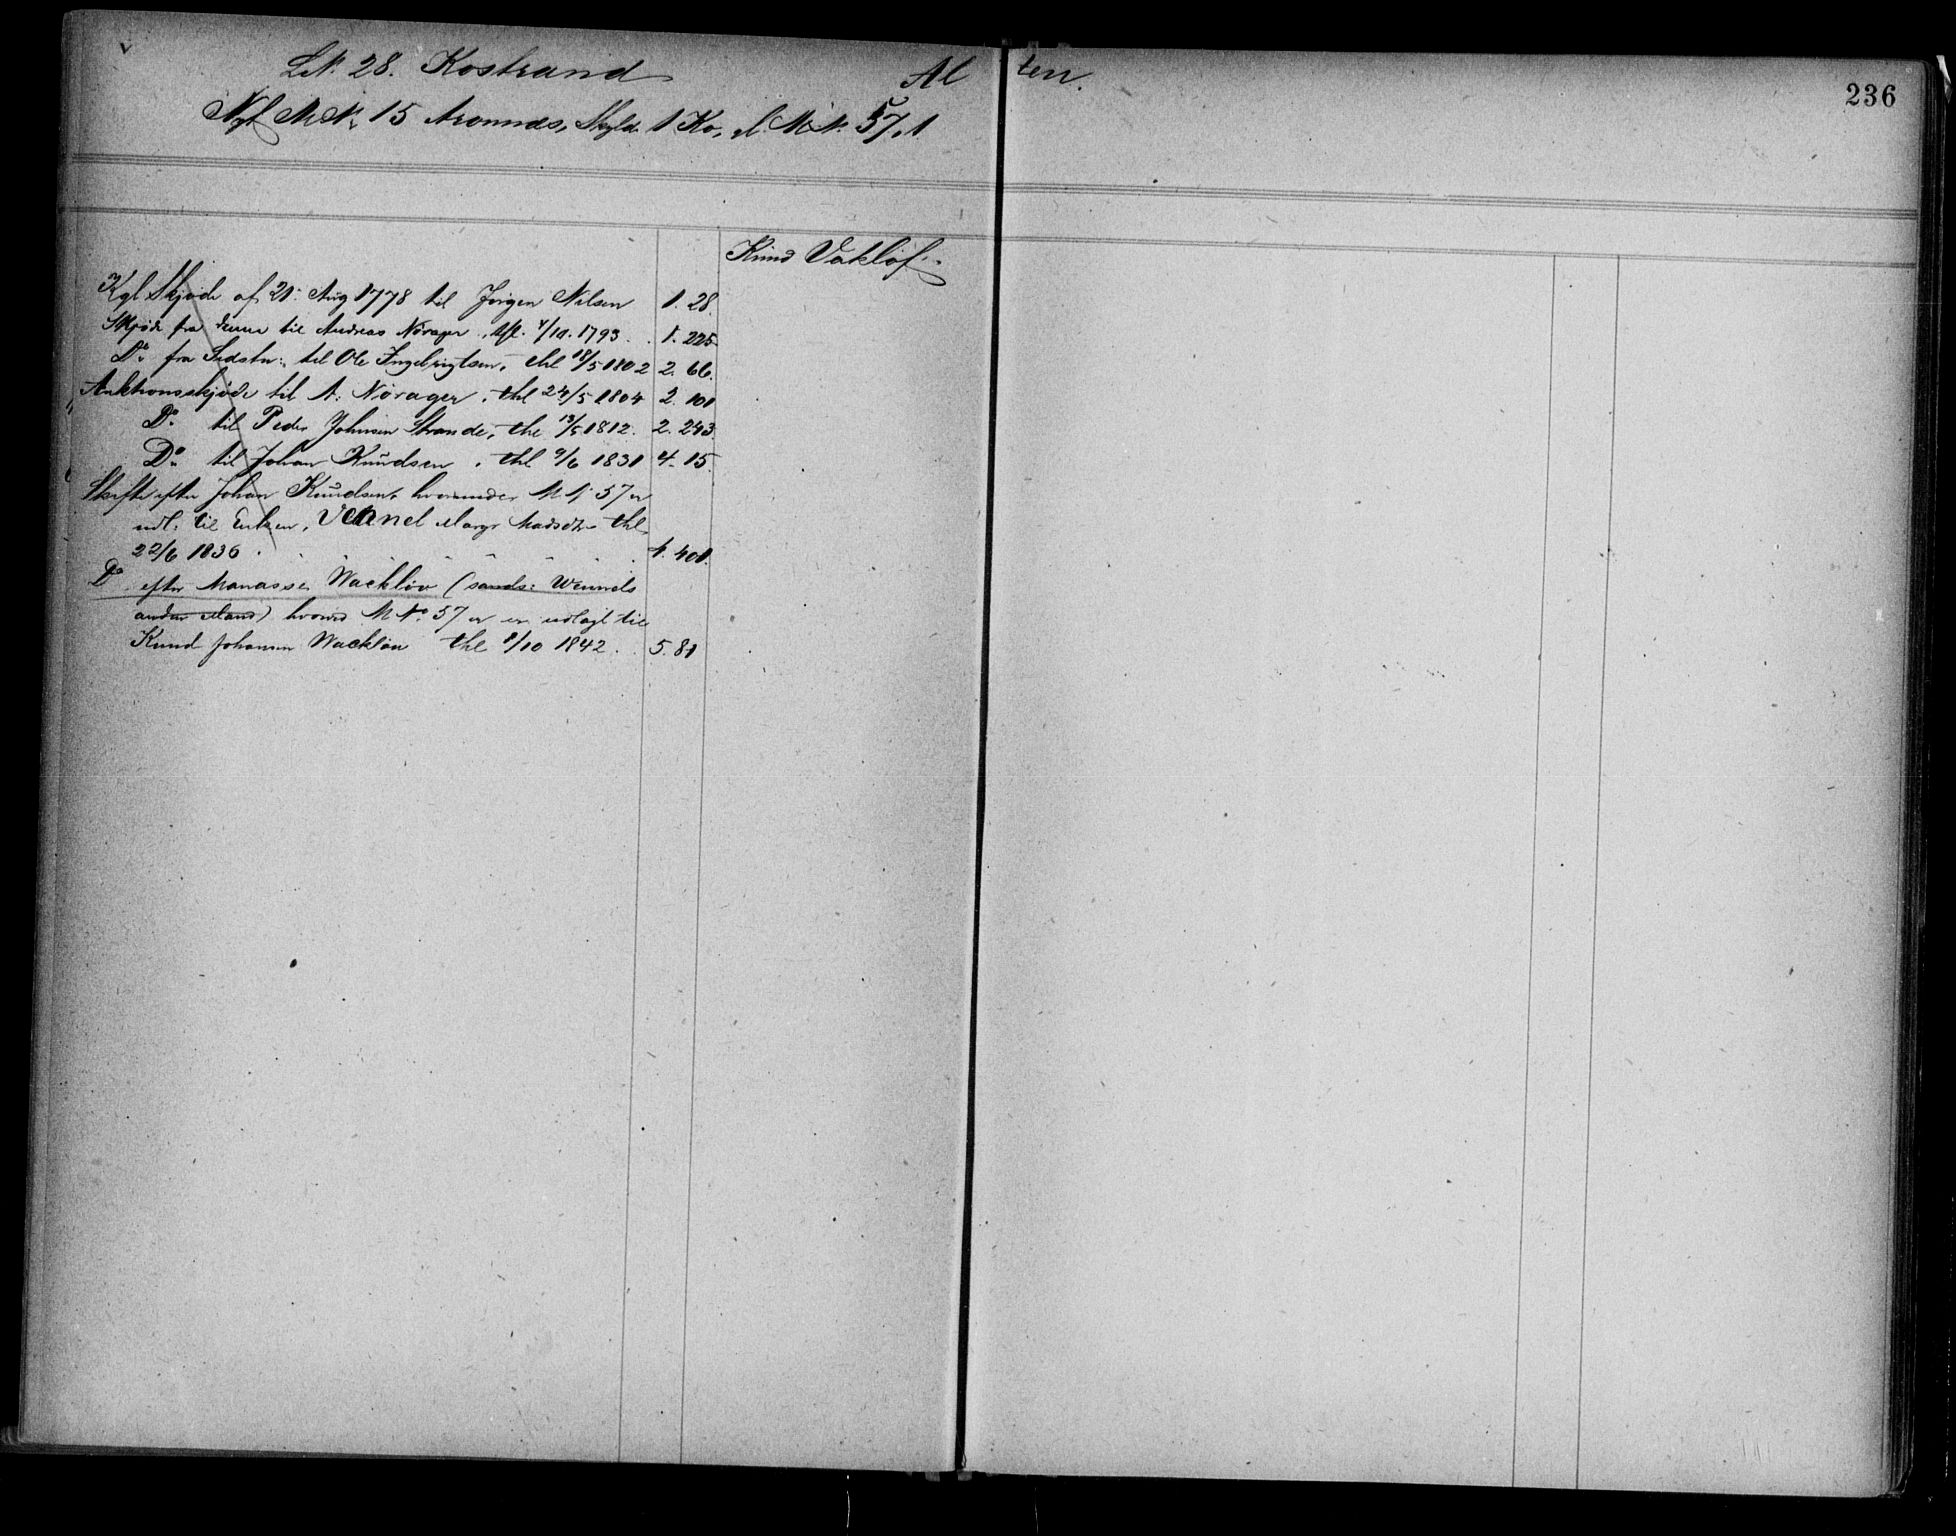 L.N. 28. Kostrand Al ten.
236
Nyt M.N. 15 Aronnæs, Skyld. 1 Ko, gl. M.N. 57.1
Knud Vaklöf.
Kgl Skjøde af 21. Aug 1778 til Jørgen Nilsen 1. 28.
Skjøde fra denne til Andreas Nörager, 4/10. 1793. 1. 225
Do fra Sidstn: til Ole Ingebrigtsen, thl 18/5 1802 2. 66.
Auktionsskjøde til A. Nörager, thl 24/5 1804 2. 101
Do til Peder Johnsen Strande, thl 13/5 1812. 2. 243.
Do til Johan Knudsen, thl 9/6 1831 4. 15.
Skifte efter Johan Knudsen, hvorunder M N 57 er
udl. til Enken, Vennel Marg. Madsdtr thl
22/6 1836. 4. 401.
Do efter Manasse Wacklöv (sands: Wennels
anden Mand) hvorved M No 57 er udlagt til
Knud Johansen Wacklöu thl 8/10 1842. 5. 81